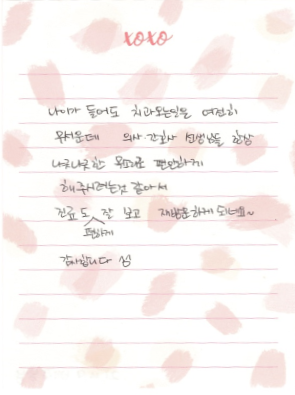 xoxo
나이가 들어도 치과오는일은 여전히
무서운데 의사 간호사 선생님들 항상
나긋나긋한 목소리로 편안하게
해주시려는것 같아서
진료도 잘 보고 재방문하게 되네요~
편하게
감사합니다